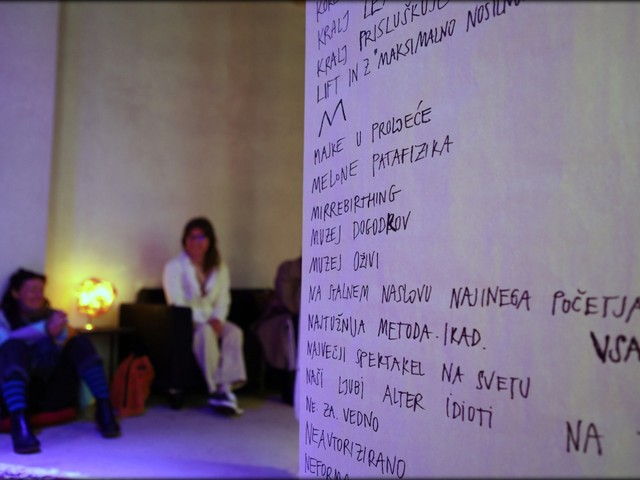 KRALJ
KRALJ PRISLUŠKUJE
LIFT IN Z "MAKSIMALNO NOSILNO
M
MAJKE U PROLJEĆE
MELONE PATAFIZIKA
MIRREBIRTHING
MUZEJ DOGODKOV
MUZEJ OŽIVI
NA STALNEM NASLOVU NAJINEGA POČETJA
NAJTUŽNIJA METODA. IKAD.
VSA
NAJVEČJI SPEKTAKEL NA SVETU
NAŠI LJUBI ALTER IDIOTI
NE ZA VEDNO
NA
NEAVTORIZIRANO
NEFORMA